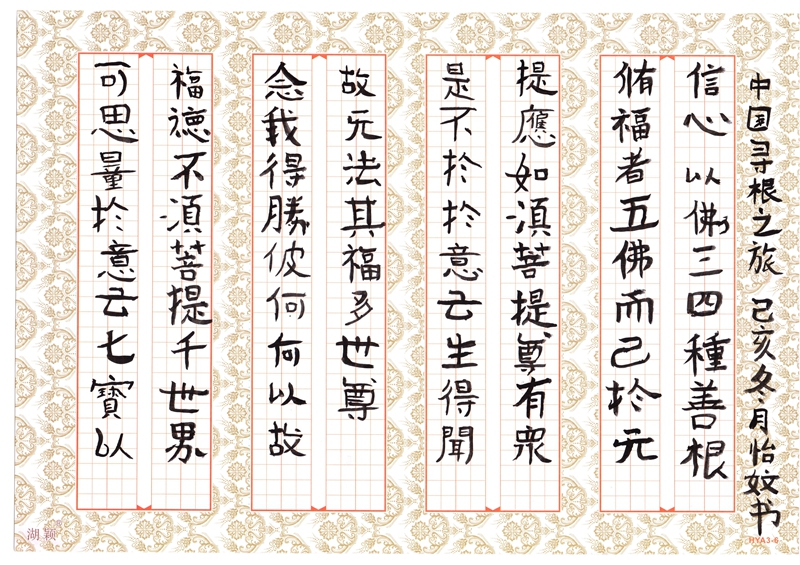 中国寻根之旅 己亥冬月怡妏书
信心以佛三四種善根
脩福者五佛而己扵元
提應如湏菩提尊有衆
是不扵扵意云生得聞
故元法其福多世尊
念我得勝彼何何以故
福德不湏菩提千世界
可思量扵意云七寳以
湖颖
HYA3-6